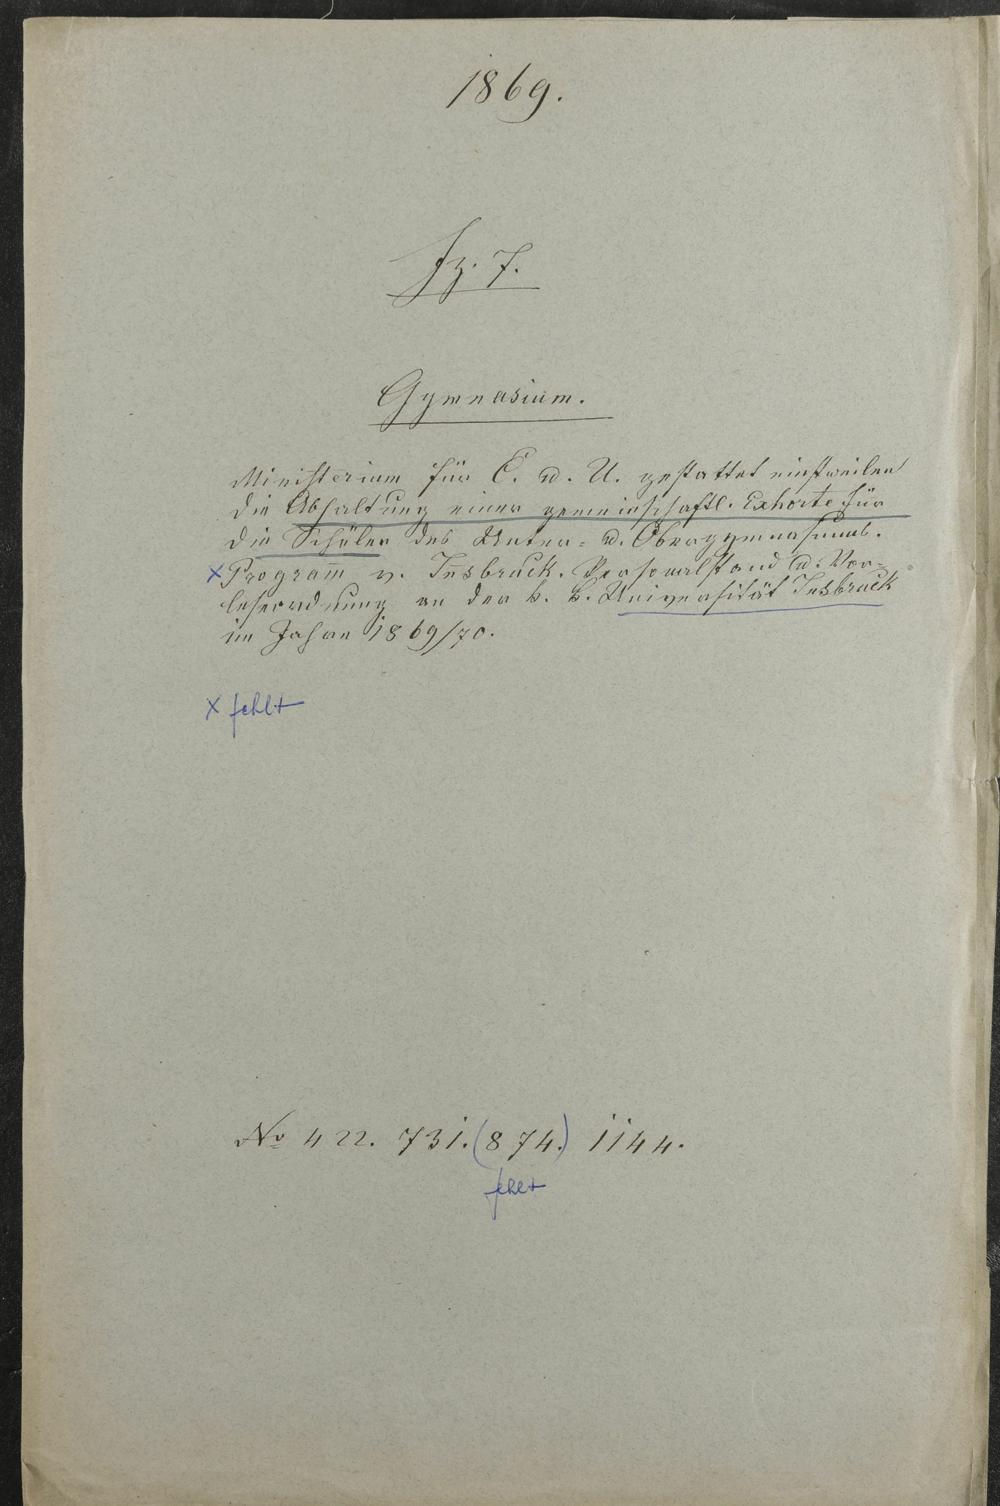 1869.
Fz. 7.
Gymnasium.
Ministerium für C. u. U. gestattet einstweilen
die Abhaltung einer gemeinschaftl. Exhorte für
die Schüler des Unter- u. Obergymnasiums.
x Programm v. Insbruck. Personalstand u. Vor-
leseordnung an der k. k. Universität Insbruck
im Jahre 1869/70.
x fehlt
No 422. 731. (874.) 1144.
fehlt